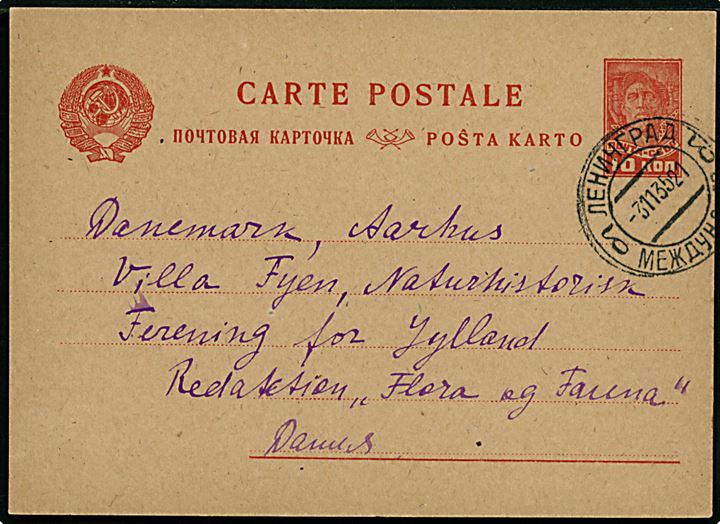 CARTE POSTALE
ПОЧТОВАЯ КАРТОЧКА POŜTA KARTO
10 КОП
ЛЕНИНГРАД
-3113521
МЕЖДУН
Danemark, Aarhus
Villa Fyen, Naturhistorisk
Forening for Jylland
Redaktion „Flora og Fauna“